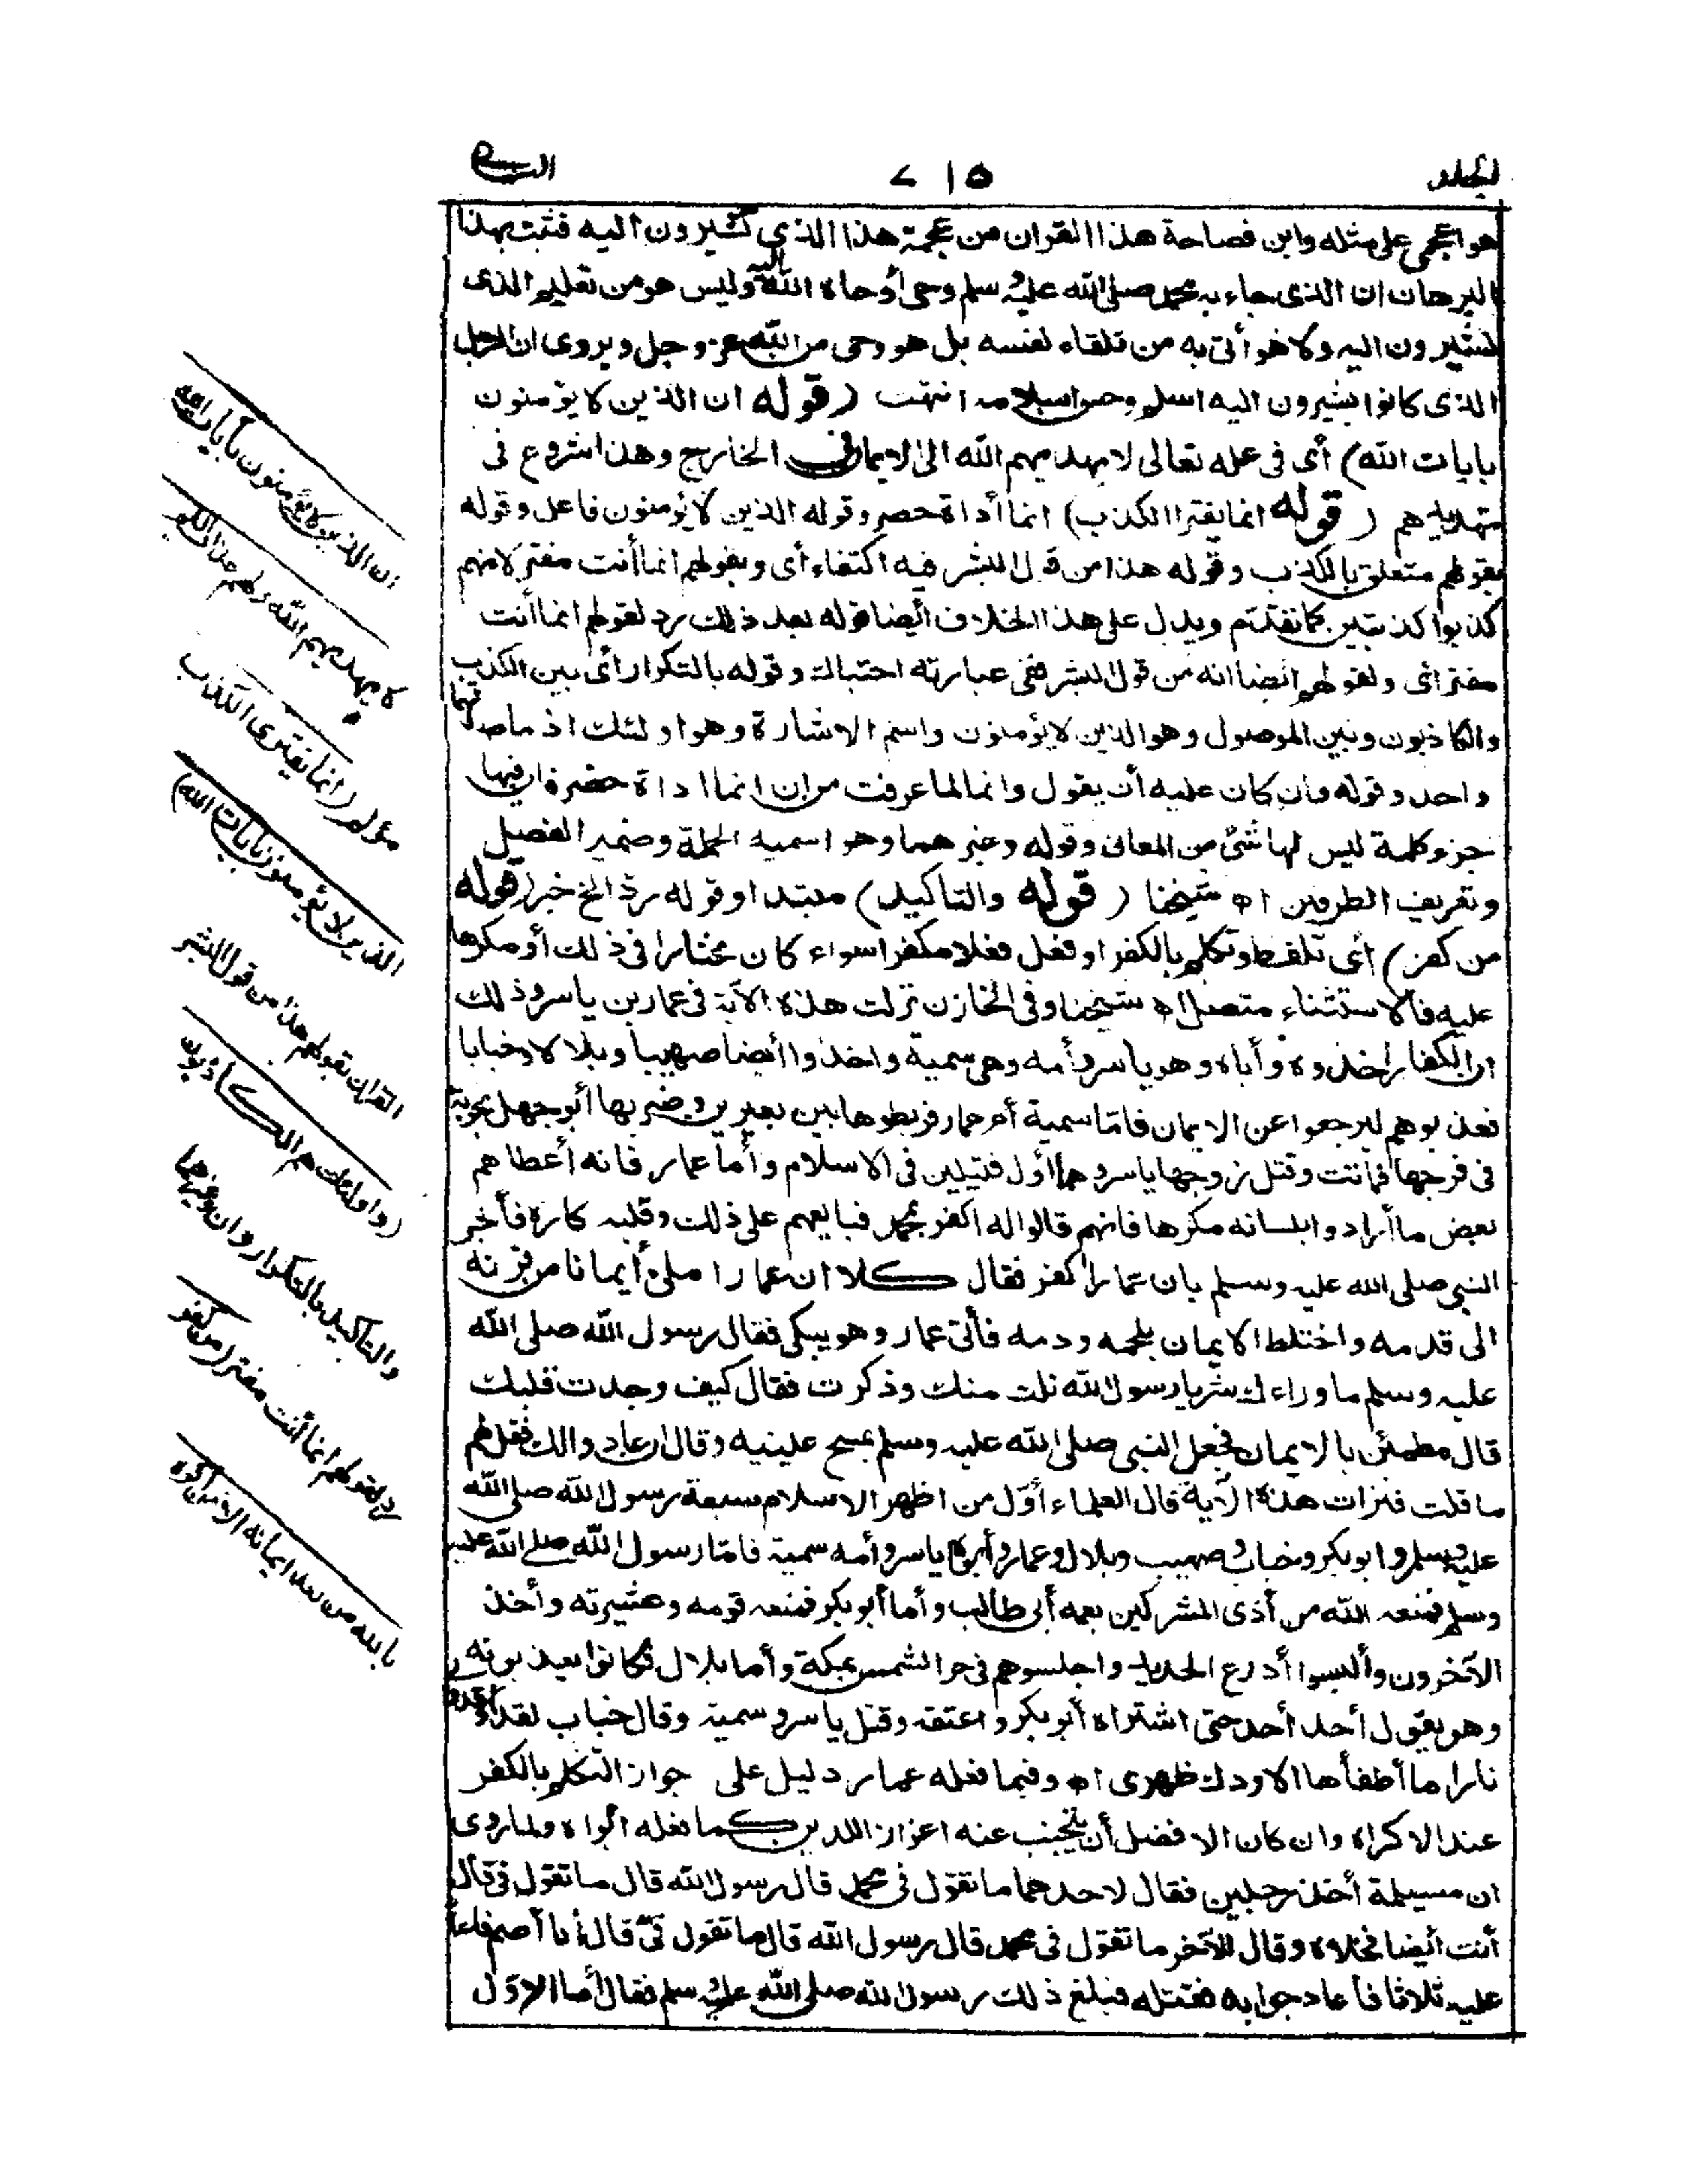 المجلد ٧١٥ السابع
هو اعجمى على مثله واين فصاحة هذا القران من عجمة هذا الذي تشيرون اليه فثبت بهذا
البرهان ان الذى جاء به محمد صلى الله عليه وسلم وحى أوحاه الله اليه وليس هو من تعليم الذى
تشيرون اليه ولا هو أتى به من تلقاء نفسه بل هو وحى من الله عز وجل ويروى ان الرجل
الذى كانوا يشيرون اليه اسلم وحسن اسلامه انتهت ( قوله ان الذين لا يؤمنون
بايات الله ) أى فى علمه تعالى لا يهديهم الله الى الايمان فى الخارج وهذا شروع فى
تهديدهم ( قوله انما يفترا الكذب ) انما أداة حصر وقوله الذين لا يؤمنون فاعل وقوله
بقولهم متعلق بالكذب وقوله هذا من قول البشر فيه اكتفاء أى وبقولهم انما أنت مفتر لانهم
كذبوا كذبتين كما تقدم ويدل على هذا الخلاف أيضا قوله بعد ذلك رد لقولهم انما أنت
مفتر أى ولقولهم أيضا انه من قول البشر ففى عبارته احتباك وقوله بالتكرار أى بين الكذب
والكاذبون وبين الموصول وهو الذين لا يؤمنون واسم الاشارة وهو اولئك اذ ماصدقهما
واحد وقوله وان كان عليه أن يقول وانما لما عرفت من ان انما اداة حصر فان فيها
جزو كلمة ليس لها شئ من المعانى وقوله وغيرهما وهو اسمية الجملة وضمير الفصل
وتعريف الطرفين اه شيخنا ( قوله والتاكيد ) مبتدا وقوله ردّ الخ خبر ( قوله
من كفر ) أى تلفظ وتكلم بالكفر او فعل فعلا مكفرا سواء كان مختارا فى ذلك أو مكرها
عليه فالاستثناء متصل اه شيخنا وفى الخازن نزلت هذه الآية فى عمار بن ياسر وذلك
ان الكفار اخذوه وأباه وهو ياسر وأمه وهى سمية واخذوا أيضا صهيبا وبلالا وخبابا
فعذبوهم ليرجعوا عن الايمان فامّا سمية أم عمار فربطوها بين بعيرين وضربها أبو جهل بحربة
فى فرجها فماتت وقتل زوجها ياسر وهما أول قتيلين فى الاسلام وأما عمار فانه أعطاهم
بعض ما أرادوا بلسانه مكرها فانهم قالوا له اكفر بمحمد فبايعهم على ذلك وقلبه كاره فأخبر
النبي صلى الله عليه وسلم بان عمارا كفر فقال كلا ان عمارا ملئ أيمانا من قرنه
الى قدمه واختلط الايمان بلحمه ودمه فأتى عمار وهو يبكى فقال رسول الله صلى الله
عليه وسلم ما وراءك شر يا رسول الله نلت منك وذكرت فقال كيف وجدت قلبك
قال مطمئن بالايمان فجعل النبي صلى الله عليه وسلم يمسح عينيه وقال ان عادوا لك فقل لهم
ما قلت فنزلت هذه الآية قال العلماء أول من اظهر الاسلام سبعة رسول الله صلى الله
عليه وسلم وابو بكر وخباب وصهيب وبلال وعمار وأبوه ياسر وأمه سمية فامّا رسول الله صلى الله عليه
وسلم فمنعه الله من أذى المشركين بعمه أبى طالب وأما أبو بكر فمنعه قومه وعشيرته وأخذ
الآخرون وألبسوا أدرع الحديد واجلسوهم فى حر الشمس بمكة وأما بلال فكانوا يعذبونه
وهو يقول أحد أحد حتى اشتراه أبو بكر واعتقه وقتل ياسر وسمية وقال خباب لقد اوقدوا
نارا ما أطفأها الا ودك ظهرى اه وفيما فعله عمار دليل على جواز التكلم بالكفر
عند الاكراه وان كان الافضل أن يتجنب عنه اعزازا للدين كما فعله أبواه ولما روى
ان مسيلمة أخذ رجلين فقال لاحدهما ما تقول فى محمد قال رسول الله قال ما تقول فىّ قال
أنت أيضا فخلاه وقال للآخر ما تقول فى محمد قال رسول الله قال ما تقول فىّ قال أنا أصم فاعاد
عليه ثلاثا فأعاد جوابه فقتله فبلغ ذلك رسول الله صلى الله عليه وسلم فقال أما الاوّل
ان الذين لا يؤمنون بآيات الله
لا يهديهم الله ولهم عذاب
مؤلم ( انما يفترى الكذب
الذين لا يؤمنون بايات الله )
القران بقولهم هذا من قول البشر
( واولئك هم الكاذبون
والتاكيد بالتكرار وان وغيرهما
رد لقولهم انما أنت مفتر ( من كفر
بالله من بعد ايمانه الا من اكره